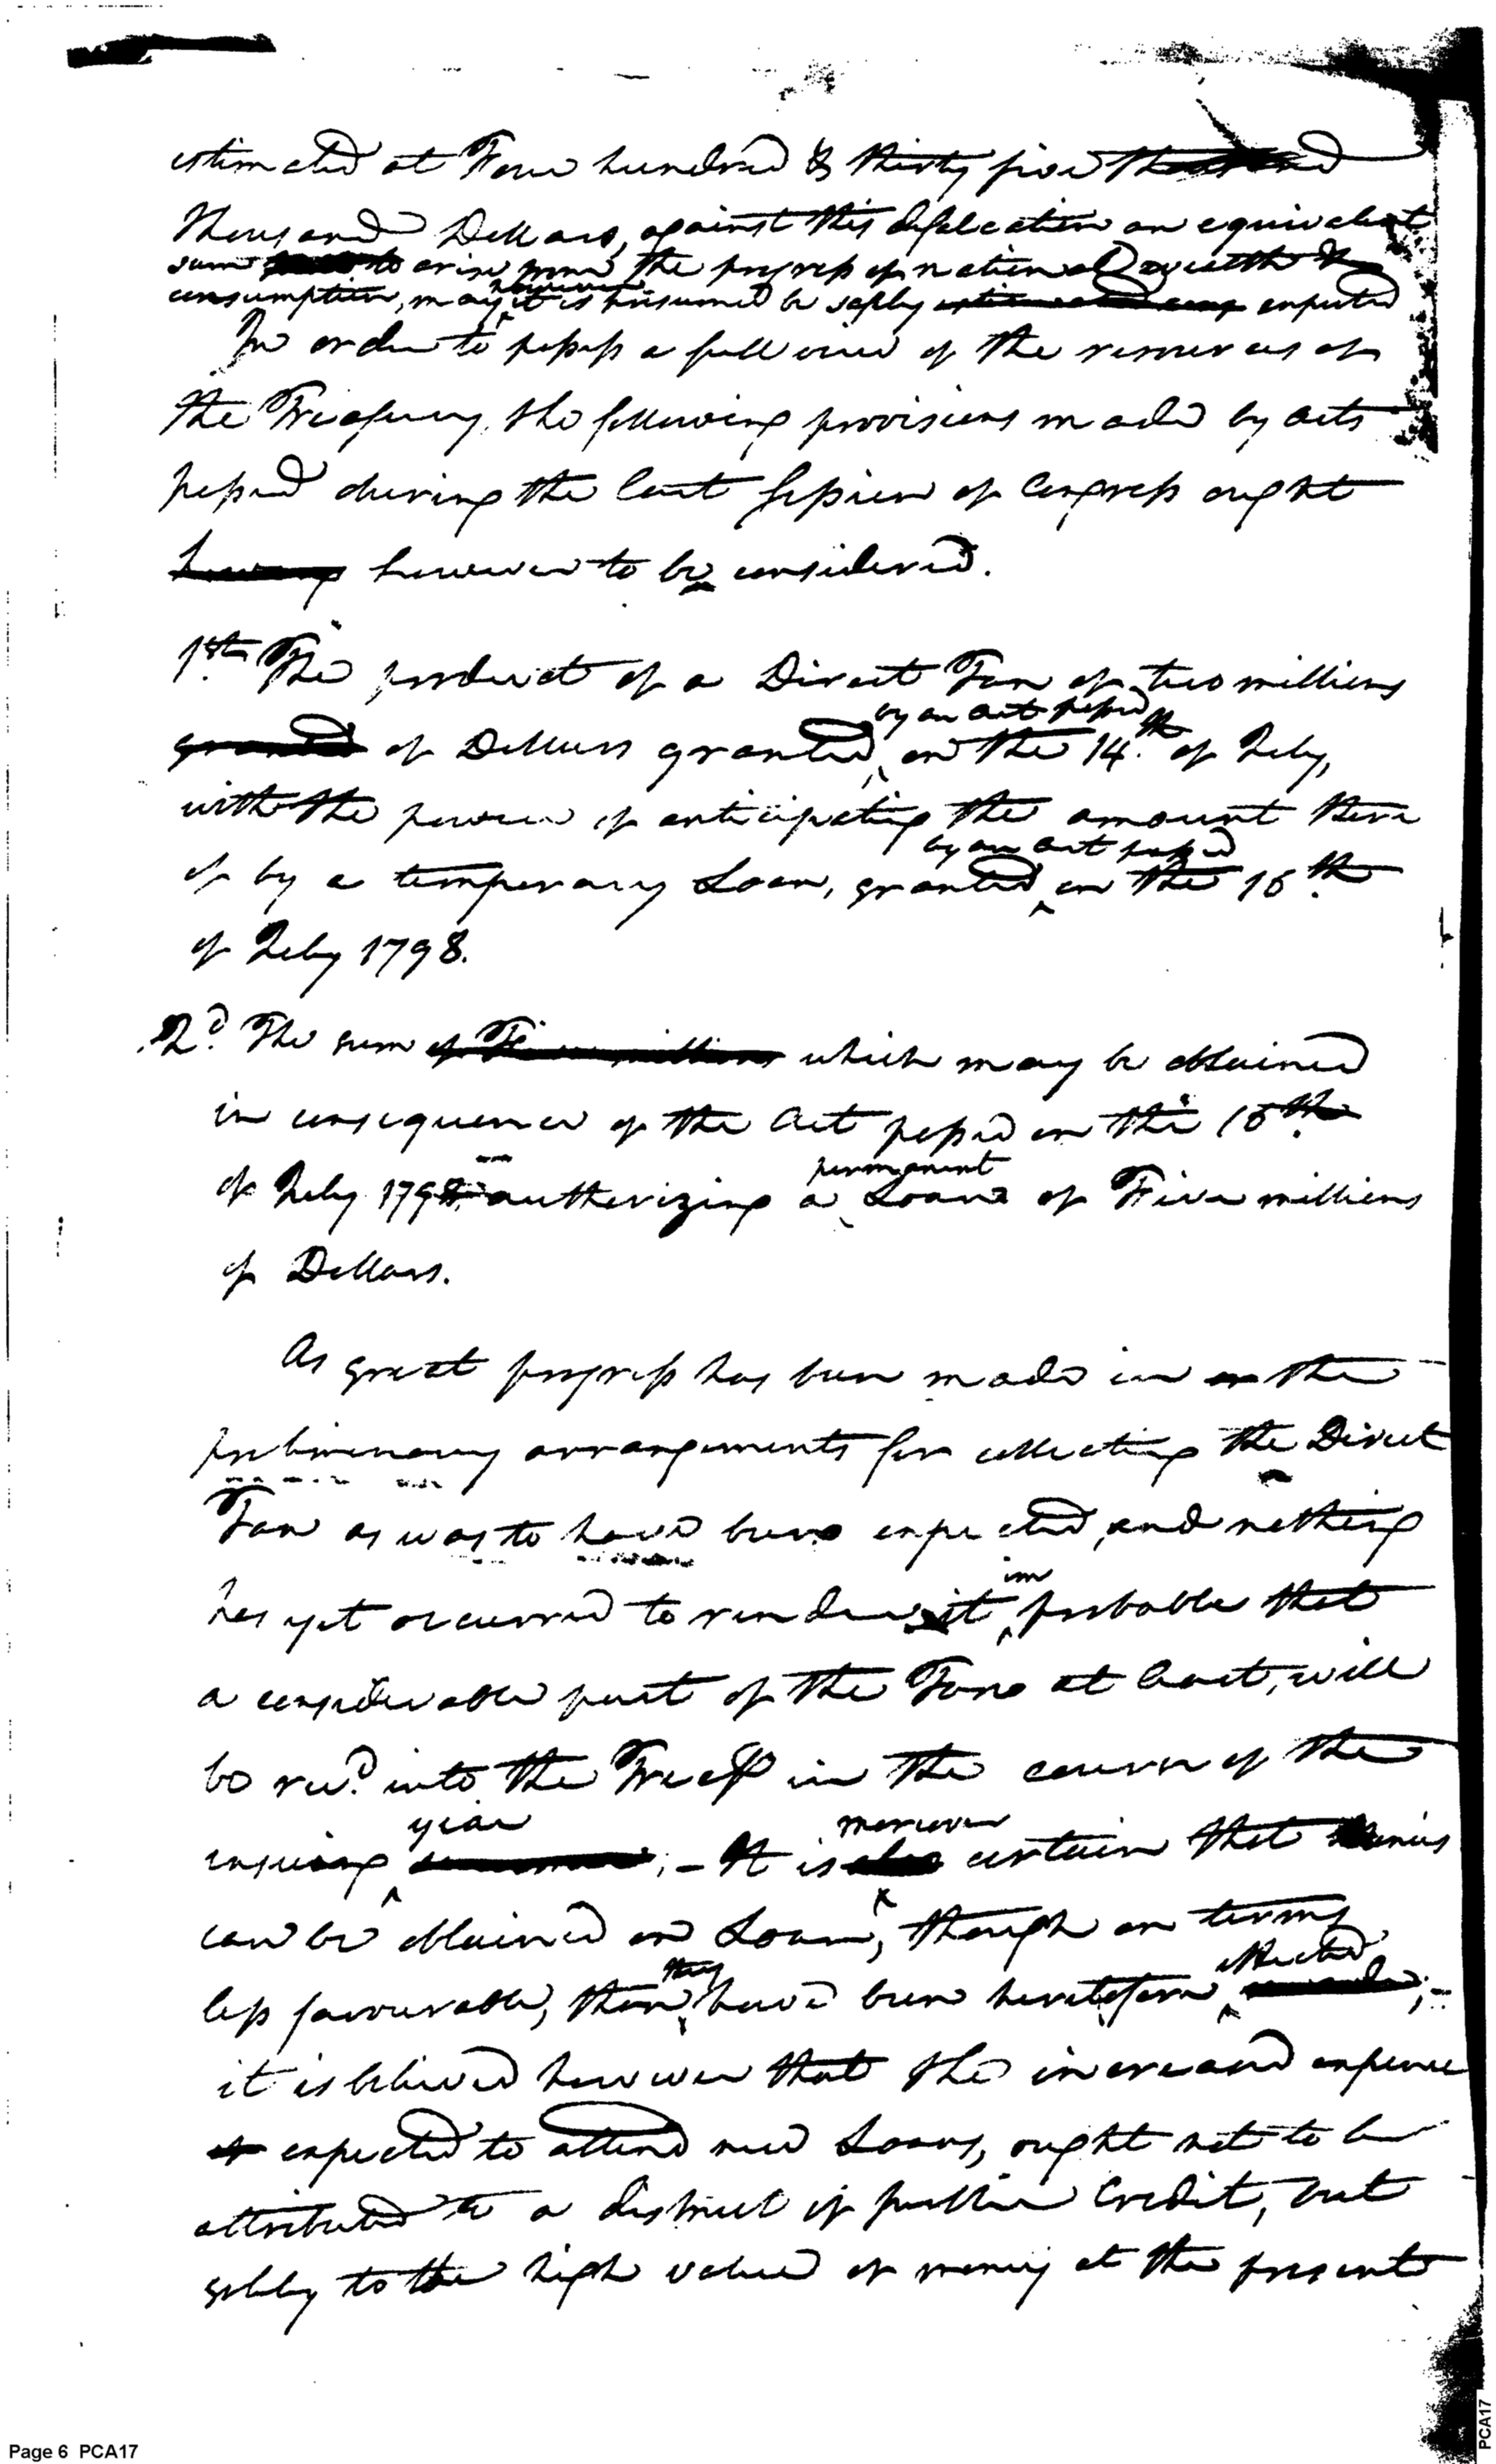 estimated at Four hundred & thirty five thousand
Thousand Dollars, against this defalcation an equivalent
sum to arise from the progress of national wealth &
consumption, may however it is presumed be safely expected
In order to possess a full view of the resources of
the Treasury, the following provisions made by acts
passed during the last Session of Congress ought
however to be considered.
1st. The product of a Direct Tax of two millions
by an act passed
granted of Dollars granted on the 14th. of July,
with the power of anticipating the amount there
by an act passed
of by a temporary Loan, granted on the 16th.
of July 1798.
2d. The sum of Five millions which may be obtained
in consequence of the Act passed on the 16th.
permanent
of July 1798. authorizing a Loan of Five millions
of Dollars.
As great progress has been made in the
preliminary arrangements for collecting the Direct
Tax as was to have been expected, and nothing
im
has yet occurred to render it probable that
a considerable part of the Tax at least, will
be recd. into the Treasy in the course of the
year moreover
ensuing ; – It is also certain that monies
can be obtained on Loan, though on terms
they effected
less favourable, than have been heretofore ;–
it is believed however that the increased expence
expected to attend new Loans, ought not to be
attributed to a distrust of public Credit, but
solely to the high value of money at the present
Page 6 PCA17
PCA17